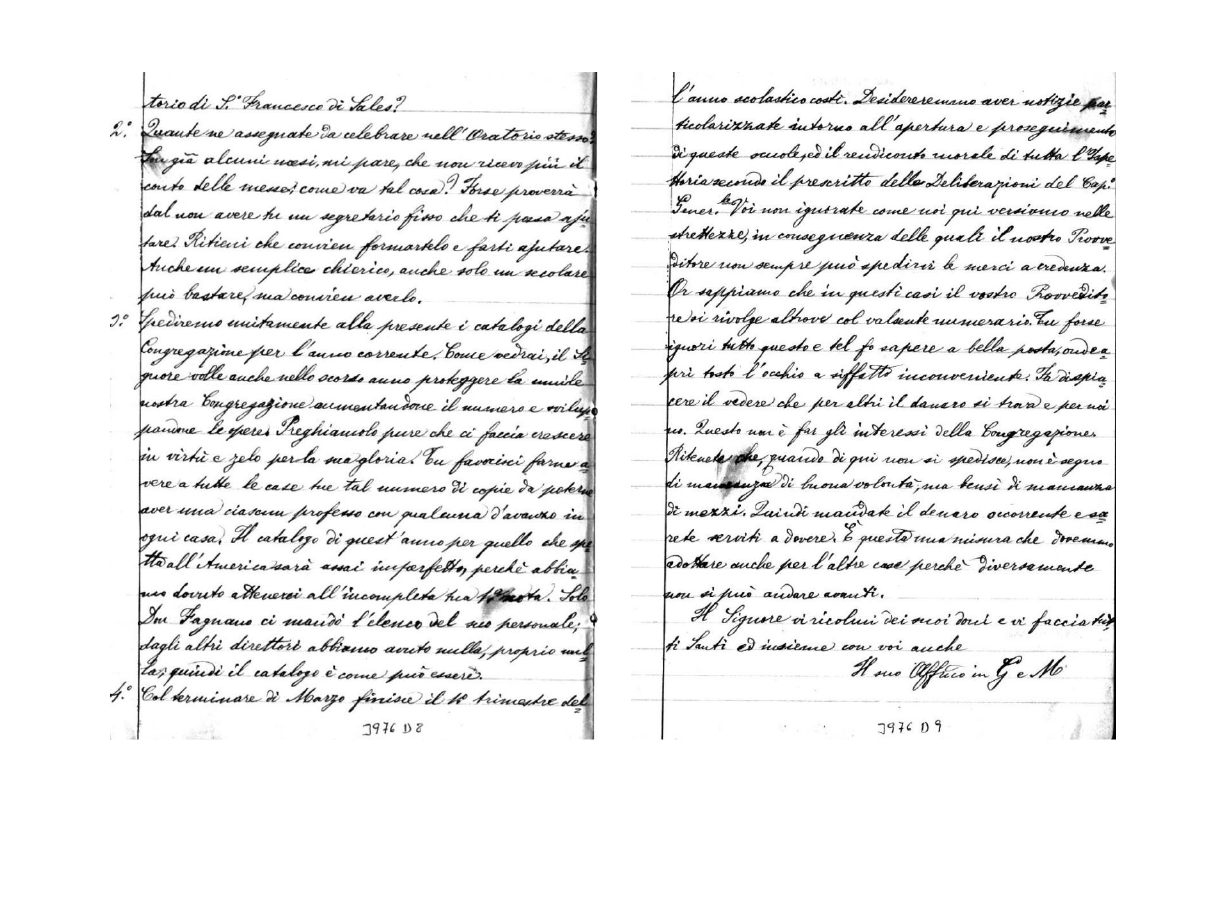 torio di S. Francesco di Sales?
2.° Quante ne assegnate da celebrare nell'Oratorio stesso?
Son già alcuni mesi, mi pare, che non ricevo più il
conto delle messe; come va tal cosa? Forse proverrà
dal non avere tu un segretario fisso che ti possa aju=
tare. Ritieni che convien formartelo e farti ajutare.
Anche un semplice chierico, anche solo un secolare
può bastare, ma convien averlo.
3.° Spediremo unitamente alla presente i catalogi della
Congregazione per l'anno corrente. Come vedrai, il Si=
gnore volle anche nello scorso anno proteggere la umile
nostra Congregazione aumentandone il numero e svilup=
pandone le opere. Preghiamolo pure che ci faccia crescere
in virtù e zelo per la sua gloria. Tu favorisci farne a=
vere a tutte le case tue tal numero di copie da poterne
aver una ciascun professo con qualcuna d'avanzo in
ogni casa. Il catalogo di quest'anno per quello che spe=
tta all'America sarà assai imperfetto, perchè abbia=
mo dovuto attenerci all'incompleta tua nota. Solo
Don Fagnano ci mandò l'elenco del suo personale;
dagli altri direttori abbiamo avuto nulla, proprio nul=
la; quindi il catalogo è come può essere.
4.° Col terminare di Marzo finisce il 1° trimestre del=
J976 D8
l'anno scolastico costì. Desidereremmo aver notizie par=
ticolarizzate intorno all'apertura e proseguimento
di queste scuole, ed il rendiconto morale di tutta l'Ispe=
ttoria secondo il prescritto delle Deliberazioni del Cap.°
Gener.le Voi non ignorate come noi qui versiamo nelle
strettezze, in conseguenza delle quali il nostro Provve=
ditore non sempre può spedirvi le merci a credenza.
Or sappiamo che in questi casi il vostro Provvedito=
re si rivolge altrove col valsente numerario. Tu forse
ignori tutto questo e tel fo sapere a bella posta, onde a=
pri tosto l'occhio a siffatto inconveniente. Fa dispia=
cere il vedere che per altri il danaro si trova e per noi
no. Questo non è far gli interessi della Congregazione.
Ritenete che, quando di qui non si spedisce, non è segno
di mancanza di buona volontà, ma bensì di mancanza
di mezzi. Quindi mandate il denaro occorrente e sa=
rete serviti a dovere. È questa una misura che dovemmo
adottare anche per l'altre case perchè diversamente
non si può andare avanti.
Il Signore vi ricolmi dei suoi doni e vi faccia tut=
ti Santi ed insieme con voi anche
Il suo Aff.mo in G e M
J976 D9